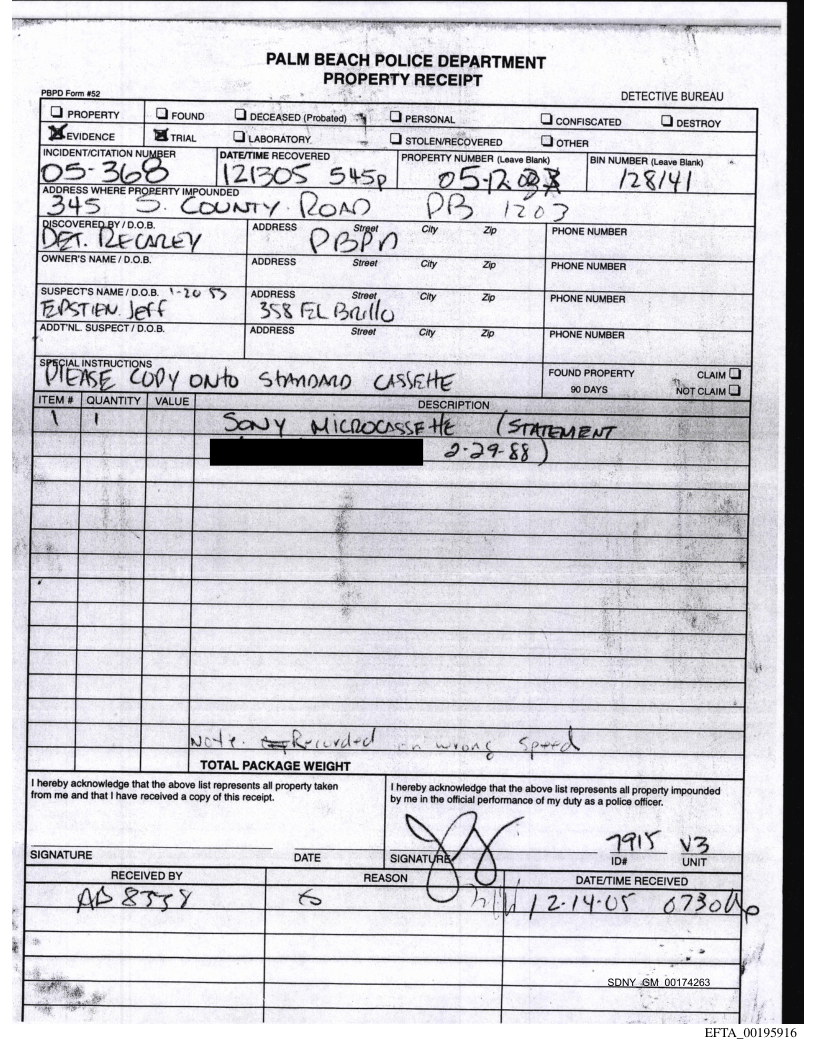 PALM BEACH POLICE DEPARTMENT
PROPERTY RECEIPT
PBPD Form #52
DETECTIVE BUREAU
PROPERTY FOUND DECEASED (Probated) PERSONAL CONFISCATED DESTROY
EVIDENCE TRIAL LABORATORY STOLEN/RECOVERED OTHER
INCIDENT/CITATION NUMBER DATE/TIME RECOVERED PROPERTY NUMBER (Leave Blank) BIN NUMBER (Leave Blank)
05-368 121305 545p 128141
ADDRESS WHERE PROPERTY IMPOUNDED
345 S. COUNTY ROAD PB 1203
DISCOVERED BY / D.O.B. ADDRESS Street City Zip PHONE NUMBER
DET. RECAREY PBPD
OWNER'S NAME / D.O.B. ADDRESS Street City Zip PHONE NUMBER
SUSPECT'S NAME / D.O.B. 1-20 53 ADDRESS Street City Zip PHONE NUMBER
EPSTIEN, Jeff 358 EL Brillo
ADDT'NL. SUSPECT / D.O.B. ADDRESS Street City Zip PHONE NUMBER
SPECIAL INSTRUCTIONS
PLEASE COPY ONTO STANDARD CASSETTE
FOUND PROPERTY CLAIM
90 DAYS NOT CLAIM
ITEM # QUANTITY VALUE DESCRIPTION
1 1 SONY MICROCASSETTE (STATEMENT
2-29-88)
Note. Recorded on wrong speed
TOTAL PACKAGE WEIGHT
I hereby acknowledge that the above list represents all property taken
from me and that I have received a copy of this receipt.
I hereby acknowledge that the above list represents all property impounded
by me in the official performance of my duty as a police officer.
7915 V3
SIGNATURE DATE SIGNATURE ID# UNIT
RECEIVED BY REASON DATE/TIME RECEIVED
12-14-05 0730
SDNY_GM_00174263
EFTA_00195916